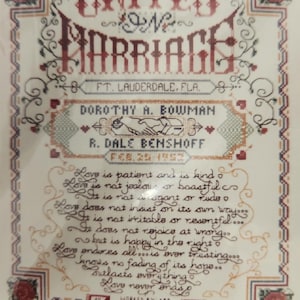 UNITED
IN
MARRIAGE
FT. LAUDERDALE, FLA.
DOROTHY A. BOWMAN
R. DALE BENSHOFF
FEB. 25, 1952
Love is patient and is kind
Love is not jealous or boastful
It is not arrogant or rude
Love does not insist on its own way...
It is not irritable or resentful...
It does not rejoice at wrong...
but is happy in the right
Love endures all... is ever trusting...
knows no fading of its hope...
outlasts everything
Love never ends